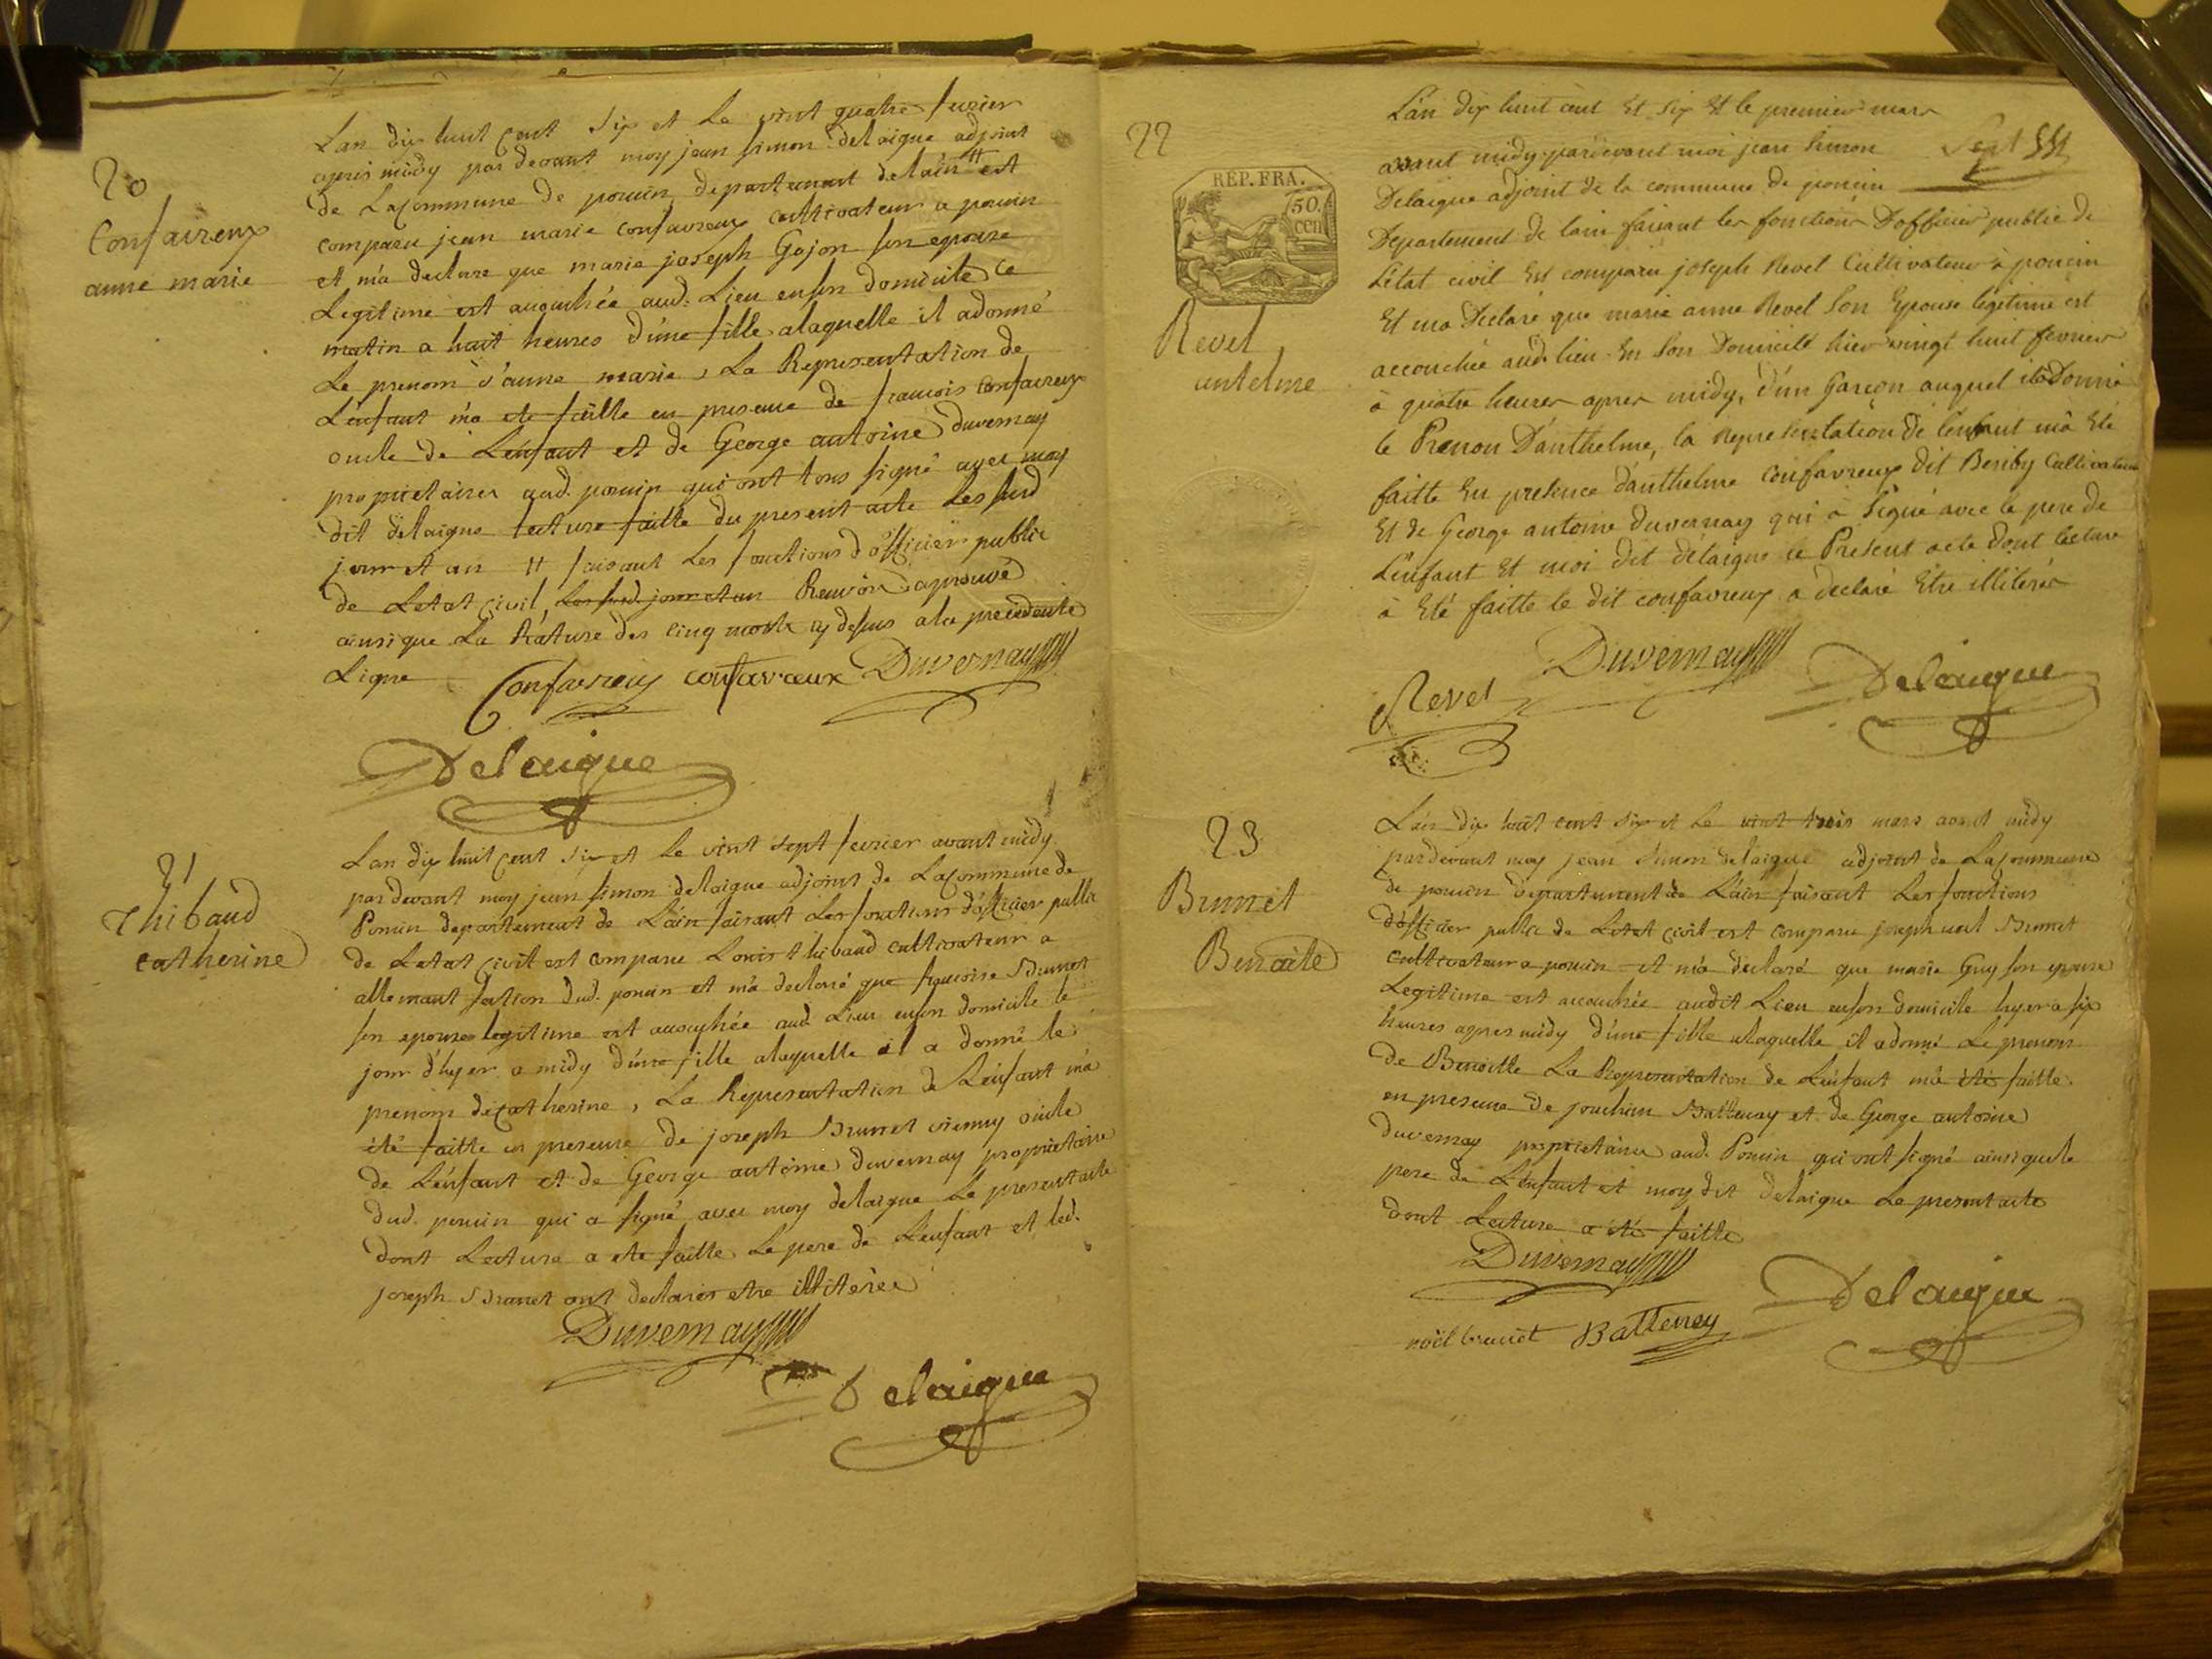 20
Confavreux
anne marie
Lan dix huit cent Six et Le vint quatre fevrier
apres midy par devant moy jean simon delaigue adjoint
de Lacommune de poncin departement delain # est
comparu jean marie confavreux cultivateur a poncin
et m'a declare que marie joseph Gojon son epouse
Legitime est accouchée aud. Lieu enson domicile ce
matin a huit heures d'une fille alaquelle il adonné
Le prenom d'anne marie, La Representation de
Lenfant m'a ete faitte en presence de francois confavreux
oncle de Lenfant et de George antoine duvernay
proprietaires aud. poncin qui ont tous signé avec moy
dit delaigue lecture faitte du present acte Les sud
jour et an # faisant Les fonctions d'officier public
de Letat Civil, Les sud. jour et an Renvoi aprouvé
ainsi que La Rature des cinq mots cy desus ala precedente
Ligne
Confavreux confavreux Duvernay
Delaigue
21
Thibaud
catherine
Lan dix huit cent six et Le vint sept fevrier avant midy
par devant moy jean simon delaigue adjoint de Lacommune de
Poncin departement de L'ain faisant Les fonctions d'officier public
de Letat Civil est comparu Louis thibaud cultivateur a
allemant section dud. poncin et m'a declaré que francoise Brunet
son epouse legitime est accouchée aud. Lieu enson domicile le
jour d'hyer a midy d'une fille alaquelle il a donné le
prenom de catherine, La Representation de Lenfant m'a
été faitte en presence de joseph Brunet viennuy oncle
de Lenfant et de George antoine duvernay proprietaire
dud. poncin qui a signé avec moy delaigue Le present acte
dont Lecture a ete faitte Le pere de Lenfant et led.
joseph Brunet ont declarés etre illiterée
Duvernay
Delaigue
22
REP. FRA.
50.
cen
Revel
antelme
L'an dix huit cent Et Six Et le premier mars
avant midy pardevant moi jean simon
Sept
Delaigue adjoint de la commune de poncin
Departement de lain faisant les fonctions D'officier public de
L'état civil Est comparu joseph Revel Cultivateur à poncin
Et m'a Déclaré que marie anne Revel Son Epouse legitime est
accouchée aud. lieu En Son Domicile hier vingt huit fevrier
à quatre heures apres midy, d'un Garçon auquel il a Donné
le Prenon D'anthelme, la Representation de l'enfant m'a Eté
faitte En presence d'anthelme Confavreux dit Beriby Cultivateur
Et de George antoine Duvernay qui à Signé avec le pere de
L'enfant Et moi dit délaigue le Present acte Dont lecture
à Eté faitte le dit confavreux a declaré Etre illiterés
Duvernay
Revel
Delaigue
23
Brunet
Benoite
L'an dix huit cent Six et Le vint trois mars avant midy
pardevant moy jean Simon delaigue adjoint de Lacommune
de poncin departement de L'ain faisant Les fonctions
d'officier public de Letat civil est comparu joseph noel Brunet
cultivateur a poncin et m'a declaré que marie Guy son epouse
Legitime est accouchée audit Lieu enson domicile hyer a six
heures apres midy d'une fille alaquelle il adonné Le prenom
de Benoitte La Representation de Lenfant m'a été faitte
en presence de joachim Battenay et de George antoine
duvernay proprietaires aud. Poncin qui ont signé ainsi que le
pere de Lenfant et moy dit delaigue Le present acte
dont Lecture a été faitte
Duvernay
Delaigue
noël brunet Batteney